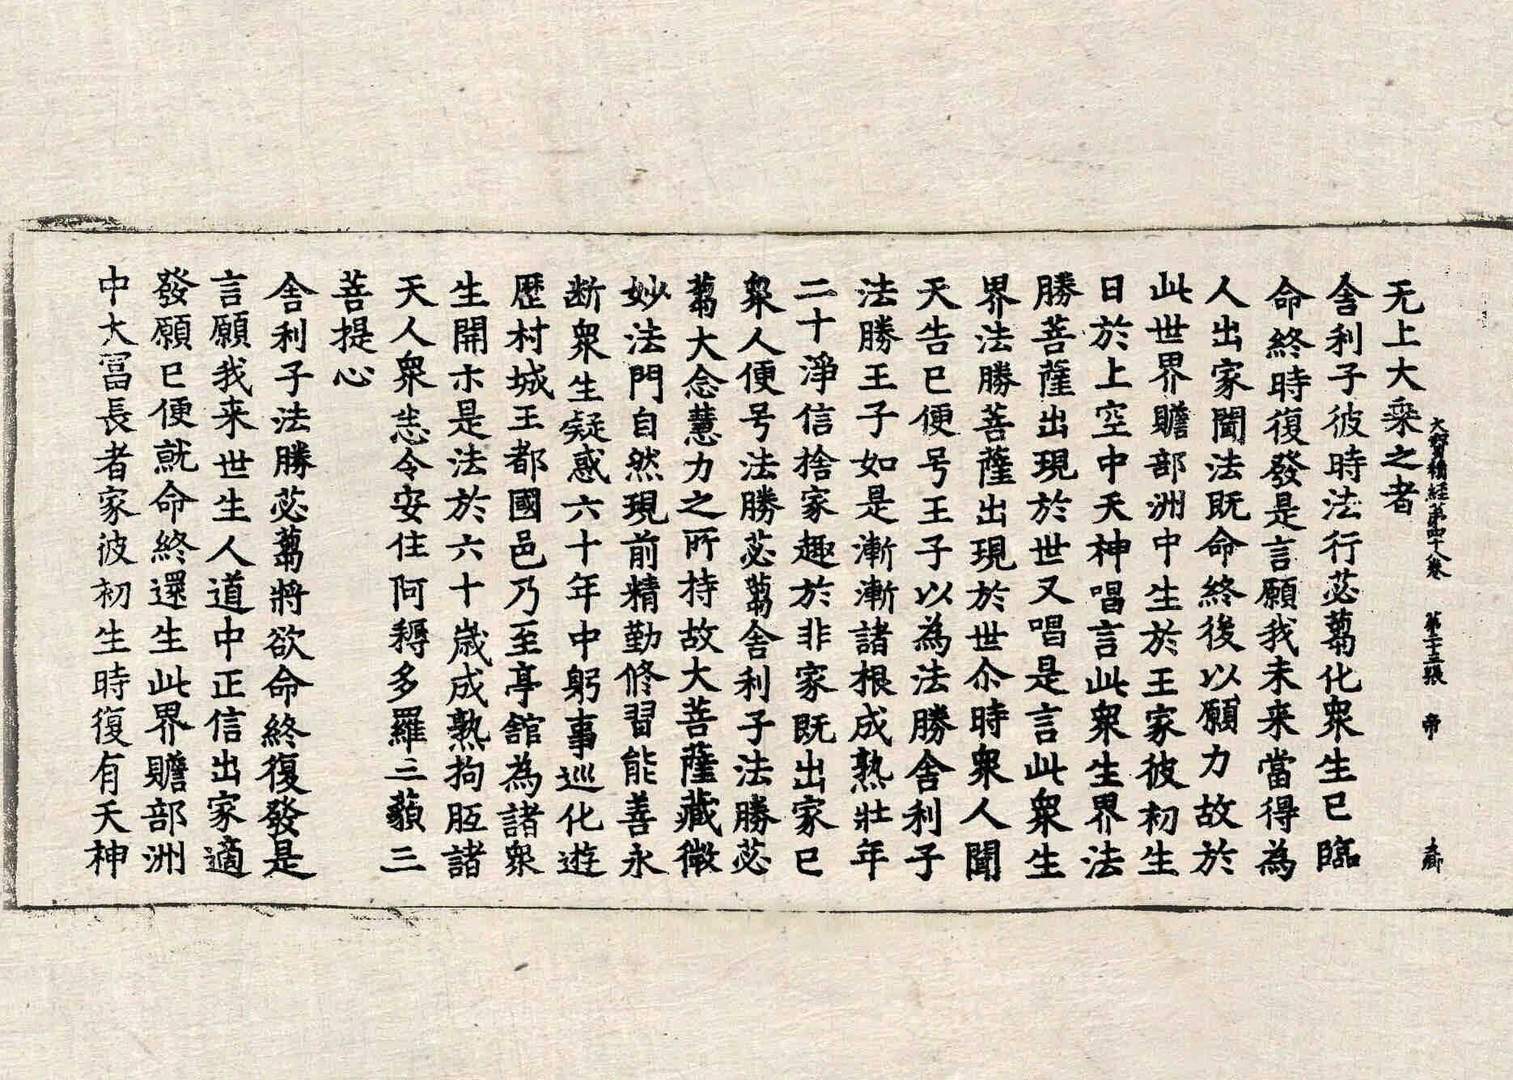 大寶積經苐四十八卷　苐二十五張　帝
无上大乘之者
舍利子彼時法行苾蒭化衆生已臨
命終時復發是言願我未来當得為
人出家聞法既命終後以願力故於
此世界贍部洲中生於王家彼初生
日於上空中天神唱言此衆生界法
勝菩薩出現於世又唱是言此衆生
界法勝菩薩出現於世尒時衆人聞
天告已便号王子以為法勝舍利子
法勝王子如是漸漸諸根成熟壯年
二十淨信捨家趣於非家既出家已
衆人便号法勝苾蒭舍利子法勝苾
蒭大念慧力之所持故大菩薩藏微
妙法門自然現前精勤修習能善永
断衆生疑惑六十年中躬事巡化遊
歷村城王都國邑乃至亭舘為諸衆
生開示是法於六十歲成熟拘胝諸
天人衆悉令安住阿耨多羅三藐三
菩提心
舍利子法勝苾蒭將欲命終復發是
言願我来世生人道中正信出家適
發願已便就命終還生此界贍部洲
中大冨長者家彼初生時復有天神